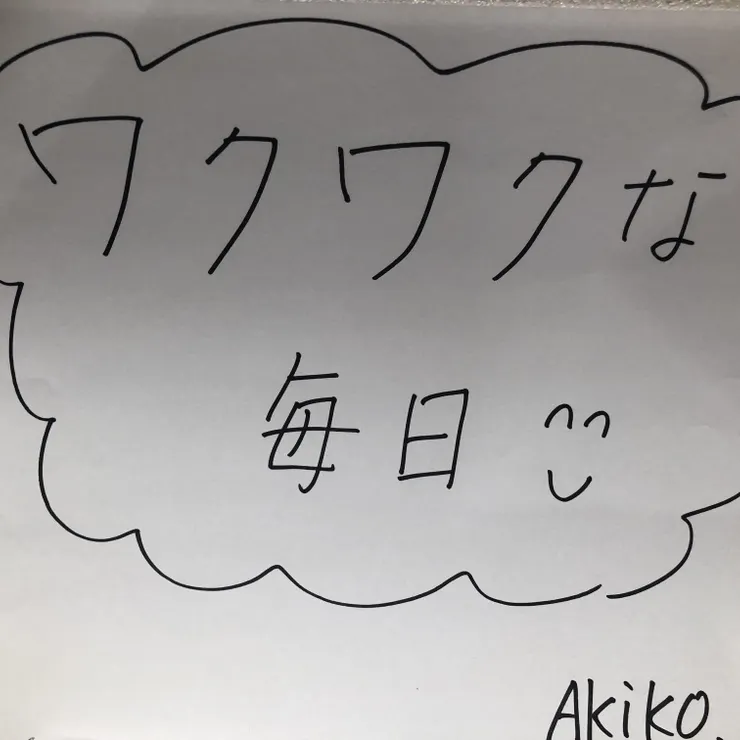 ワクワクな
毎日
Akiko.